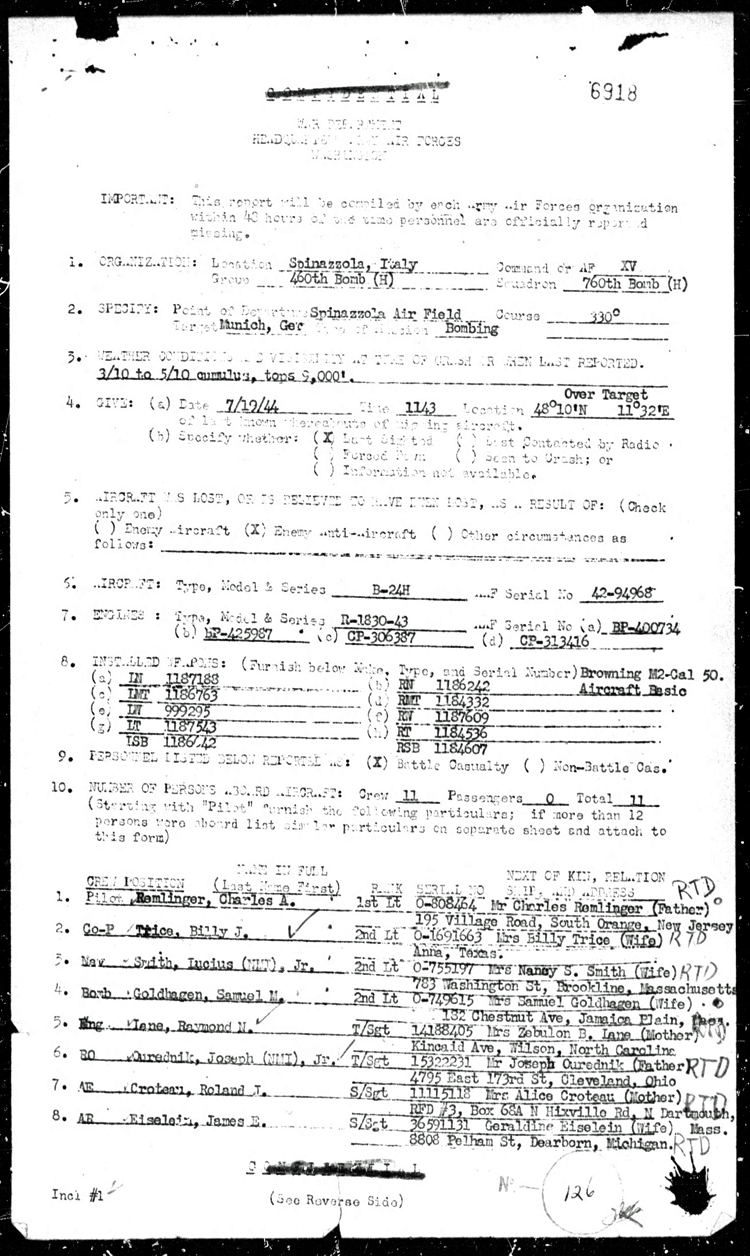 CONFIDENTIAL
6918
WAR DEPARTMENT
HEADQUARTERS ARMY AIR FORCES
WASHINGTON
IMPORTANT: This report will be compiled by each Army Air Forces organization
within 48 hours of the time personnel are officially reported
missing.
1. ORGANIZATION: Location Spinazzola, Italy Command or AF XV
Group 460th Bomb (H) Squadron 760th Bomb (H)
2. SPECIFY: Point of Departure Spinazzola Air Field Course 330°
Target Munich, Ger Type of Mission Bombing
3. WEATHER CONDITIONS AND VISIBILITY AT TIME OF CRASH OR WHEN LAST REPORTED.
3/10 to 5/10 cumulus, tops 9,000'.
Over Target
4. GIVE: (a) Date 7/19/44 Time 1143 Location 48°10'N 11°32'E
of last known whereabouts of missing aircraft.
(b) Specify whether: (X) Last Sighted ( ) Last Contacted by Radio
( ) Forced Down ( ) Seen to Crash; or
( ) Information not available.
5. AIRCRAFT WAS LOST, OR IS BELIEVED TO HAVE BEEN LOST, AS A RESULT OF: (Check
only one)
( ) Enemy Aircraft (X) Enemy Anti-Aircraft ( ) Other circumstances as
follows:
6. AIRCRAFT: Type, Model & Series B-24H AAF Serial No 42-94968
7. ENGINES : Type, Model & Series R-1830-43 AAF Serial No (a) BP-400734
(b) BP-425987 (c) CP-306387 (d) CP-313416
8. INSTALLED WEAPONS: (Furnish below Make, Type, and Serial Number) Browning M2-Cal 50.
(a) LN 1187188 (b) RN 1186242 Aircraft Basic
(c) LMT 1186763 (d) RMT 1184332
(e) LW 999295 (f) RW 1187609
(g) LT 1187543 (h) RT 1184536
LSB RSB 1184607
9. PERSONNEL LISTED BELOW REPORTED AS: (X) Battle Casualty ( ) Non-Battle Cas.
10. NUMBER OF PERSONS ABOARD AIRCRAFT: Crew 11 Passengers 0 Total 11
(Starting with "Pilot" furnish the following particulars; if more than 12
persons were aboard list similar particulars on separate sheet and attach to
this form)
NAME IN FULL NEXT OF KIN, RELATION
CREW POSITION (Last Name First) RANK SERIAL NO SHIP, AND ADDRESS RTD
1. Pilot Remlinger, Charles A. 1st Lt O-808464 Mr Charles Remlinger (Father)
195 Village Road, South Orange, New Jersey
2. Co-P Trice, Billy J. 2nd Lt O-1691663 Mrs Billy Trice (Wife) RTD
Anna, Texas.
3. Nav Smith, Lucius (NMI), Jr. 2nd Lt O-755197 Mrs Nancy S. Smith (Wife) RTD
783 Washington St, Brookline, Massachusetts
4. Bomb Goldhagen, Samuel M. 2nd Lt O-749615 Mrs Samuel Goldhagen (Wife)
132 Chestnut Ave, Jamaica Plain, Mass.
5. Eng Lane, Raymond N. T/Sgt 14188405 Mrs Zebulon B. Lane (Mother) RTD
Kincaid Ave, Wilson, North Carolina
6. RO Ourednik, Joseph (NMI), Jr. T/Sgt 15322231 Mr Joseph Ourednik (Father RTD
4795 East 173rd St, Cleveland, Ohio
7. AE Croteau, Roland J. S/Sgt 11115118 Mrs Alice Croteau (Mother) RTD
RFD #3, Box 68A N Hixville Rd, N Dartmouth,
8. AR Eiselein, James E. S/Sgt 36591131 Geraldine Eiselein (Wife) Mass.
8808 Pelham St, Dearborn, Michigan. RTD
CONFIDENTIAL
Incl #1 (See Reverse Side) No 126